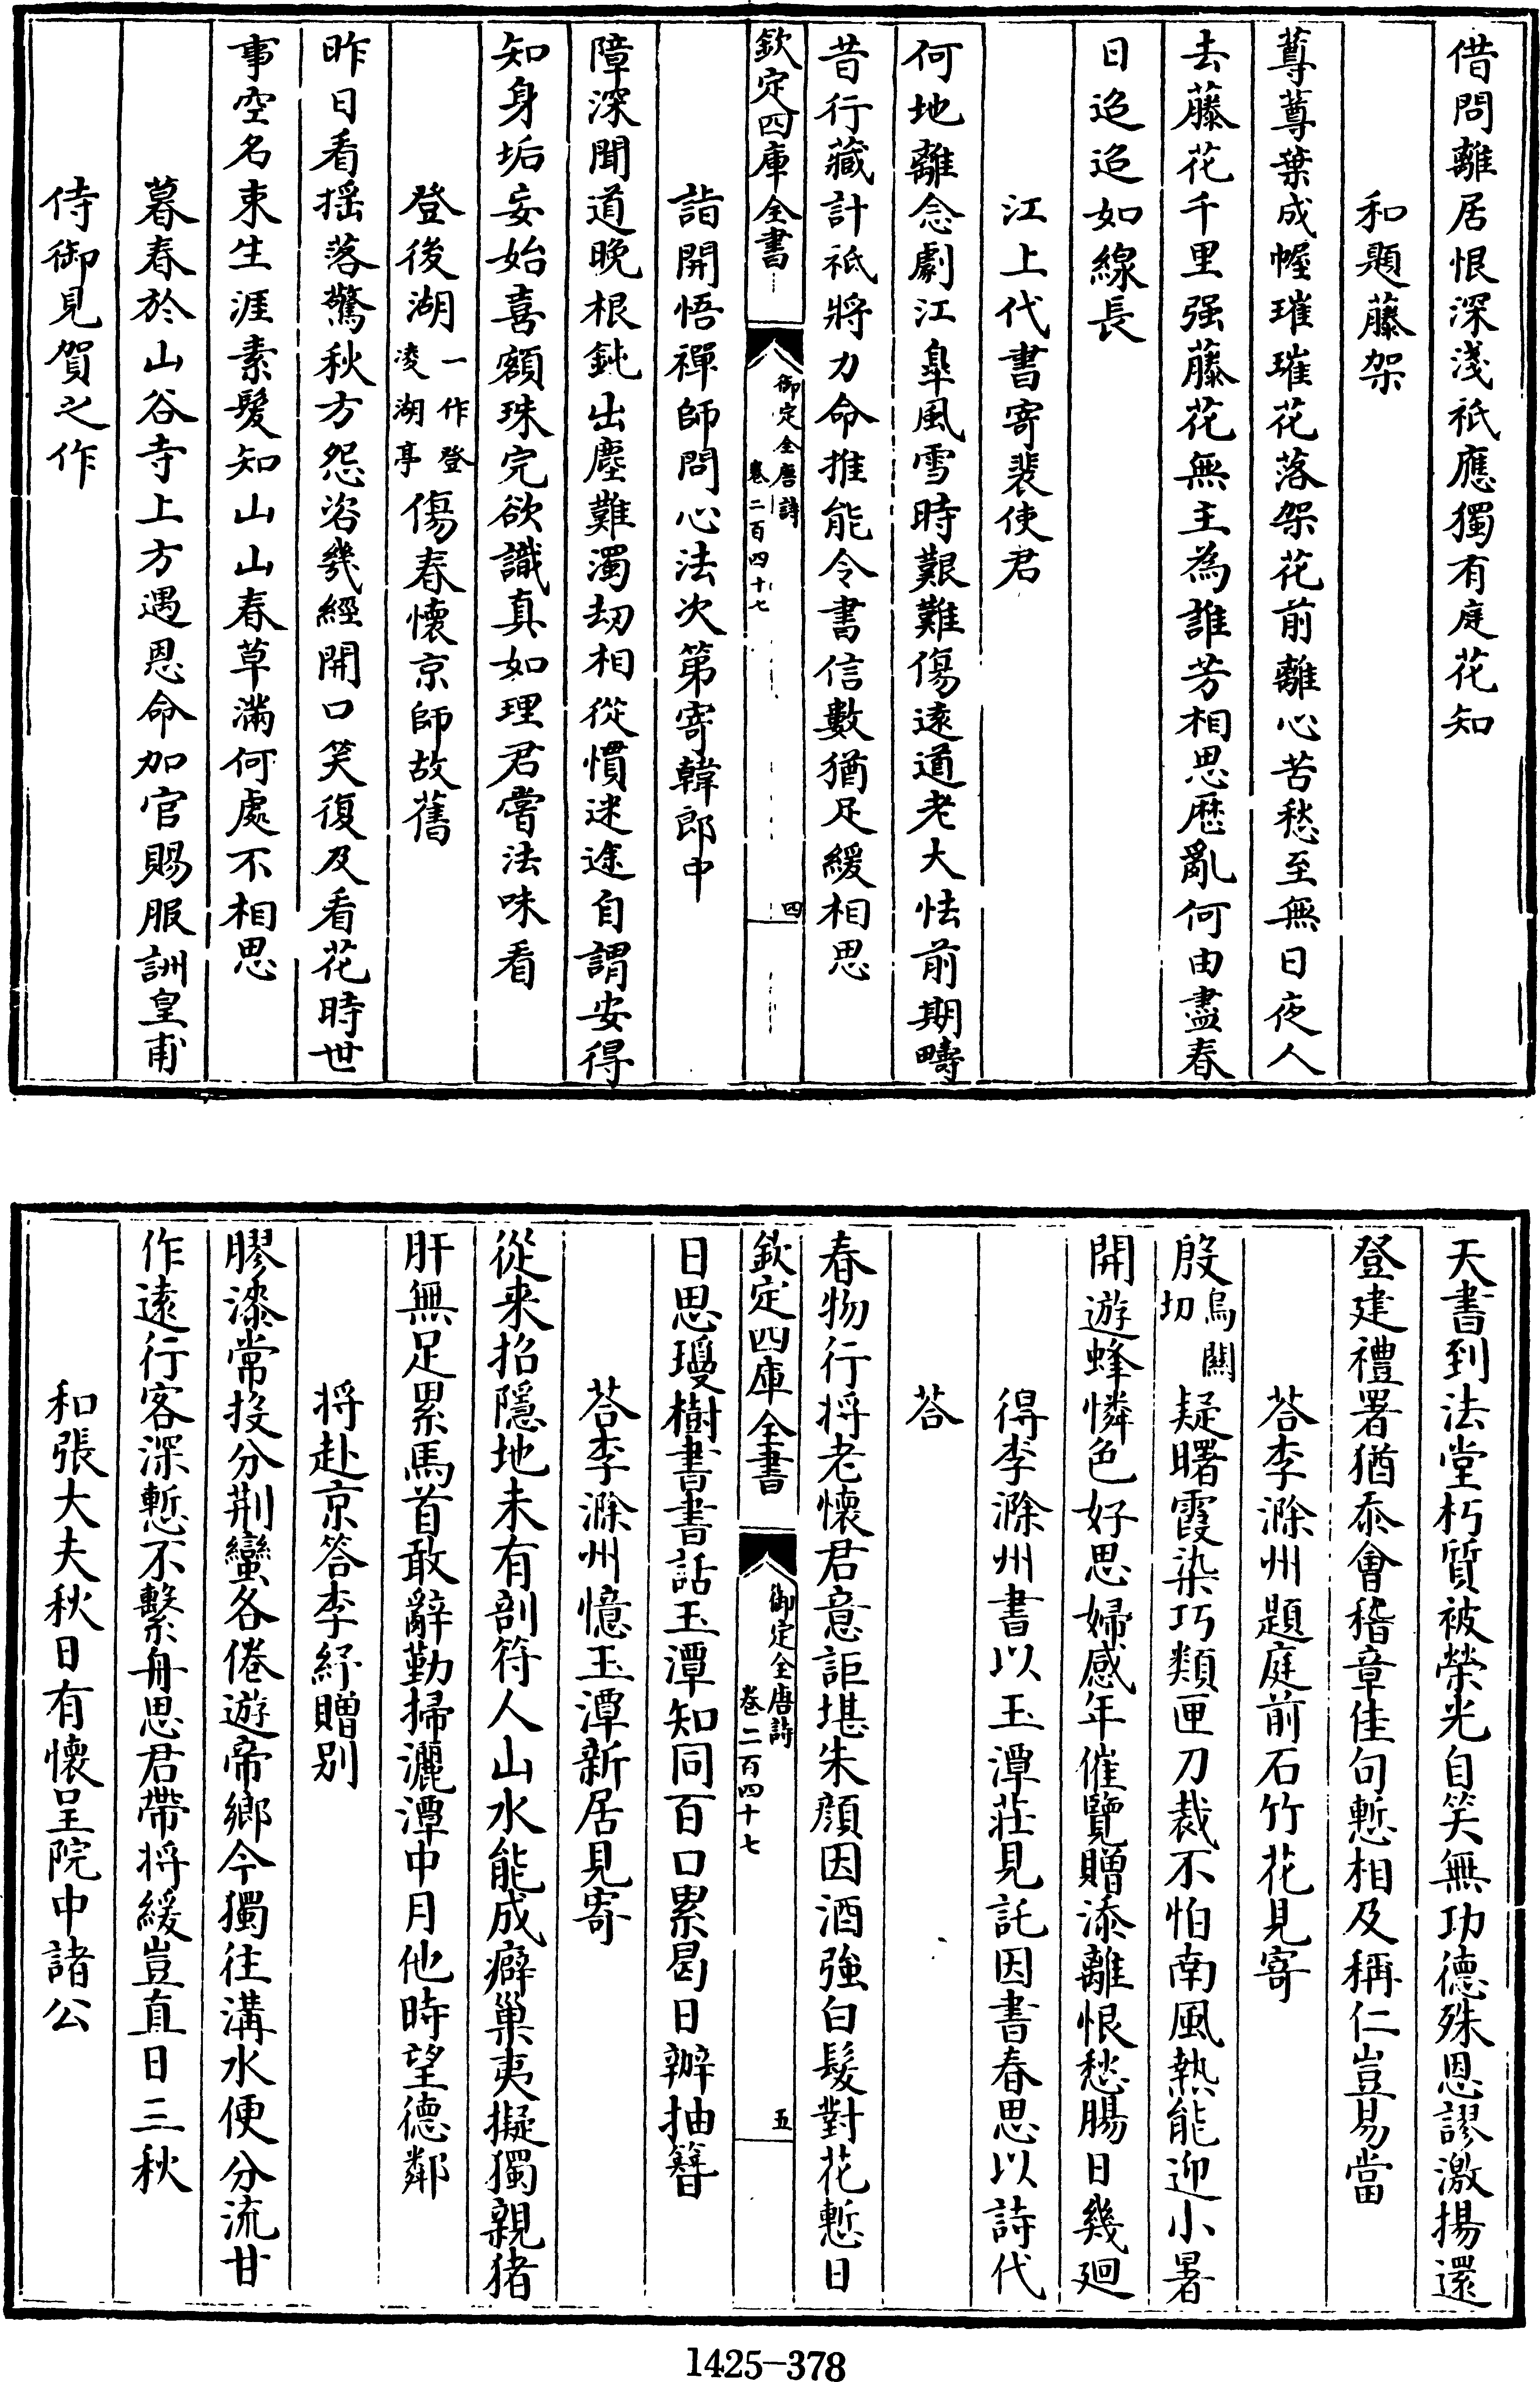 借問離居恨深淺祇應獨有庭花知
和題藤架
蓴蓴葉成幄璀璀花落架花前離心苦愁至無日夜人
去藤花千里强藤花無主為誰芳相思歴亂何由盡春
日迢迢如線長
江上代書寄裴使君
何地離念劇江臯風雪時艱難傷遠道老大怯前期疇
昔行藏計祇將力命推能令書信數猶足緩相思
欽定四庫全書
御定全唐詩
卷二百四十七
四
詣開悟禪師問心法次第寄韓郎中
障深聞道晚根鈍出塵難濁刼相從慣迷途自謂安得
知身垢妄始喜額珠完欲識真如理君嘗法味看
登後湖一作登凌湖亭傷春懷京師故舊
昨日看揺落驚秋方怨咨幾經開口笑復及看花時世
事空名束生涯素髪知山山春草滿何處不相思
暮春於山谷寺上方遇恩命加官賜服詶皇甫
侍御見賀之作
天書到法堂朽質被榮光自笑無功德殊恩謬激揚還
登建禮署猶忝會稽章佳句慙相及稱仁豈易當
荅李滁州題庭前石竹花見寄
殷烏闗切疑曙霞染巧類匣刀裁不怕南風熱能迎小暑
開遊蜂憐色好思婦感年催覽贈添離恨愁腸日幾廻
得李滁州書以玉潭莊見託因書春思以詩代
荅
春物行将老懷君意詎堪朱顔因酒強白髪對花慙日
欽定四庫全書
御定全唐詩
卷二百四十七
五
日思瓊樹書書話玉潭知同百口累曷日辦抽簪
荅李滁州憶玉潭新居見寄
從来招隠地未有剖符人山水能成癖巢夷擬獨親猪
肝無足累馬首敢辭勤掃灑潭中月他時望德鄰
将赴京答李紓贈别
膠漆常投分荆蠻各倦遊帝鄉今獨往溝水便分流甘
作遠行客深慙不繫舟思君帶将緩豈直日三秋
和張大夫秋日有懷呈院中諸公
1425-378